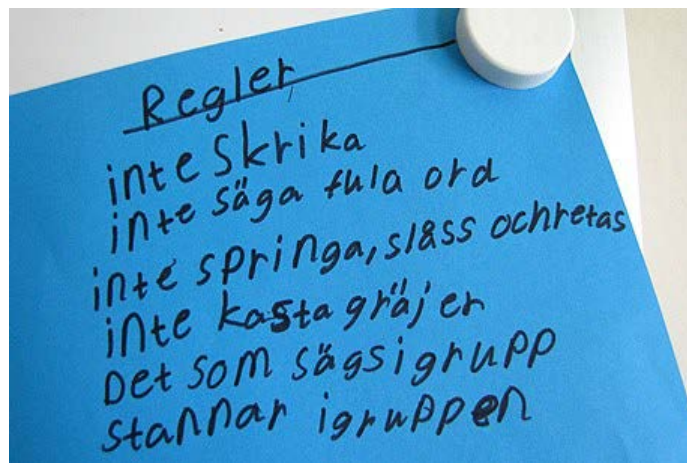 Regler
inte skrika
inte säga fula ord
inte springa, slåss ochretas
inte kasta gräjer
Det som sägsigrupp
stannar igruppen